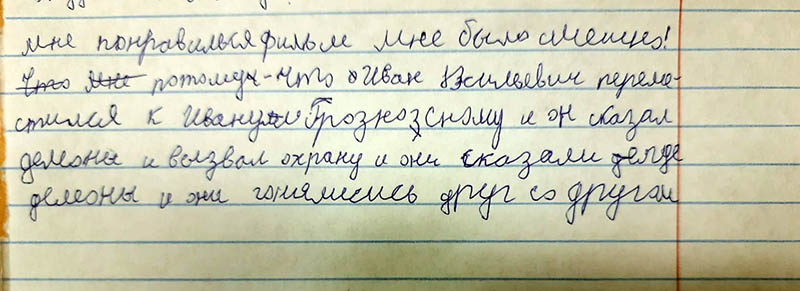 мне понравилься фильм мне было смешно!
Что мне потомуч-что Иван Васильевич переме-
стился к Ивану Грознозсному и он сказал
демоны и вызвал охрану и они сказали демде
демоны и они гонялисись друг со другом